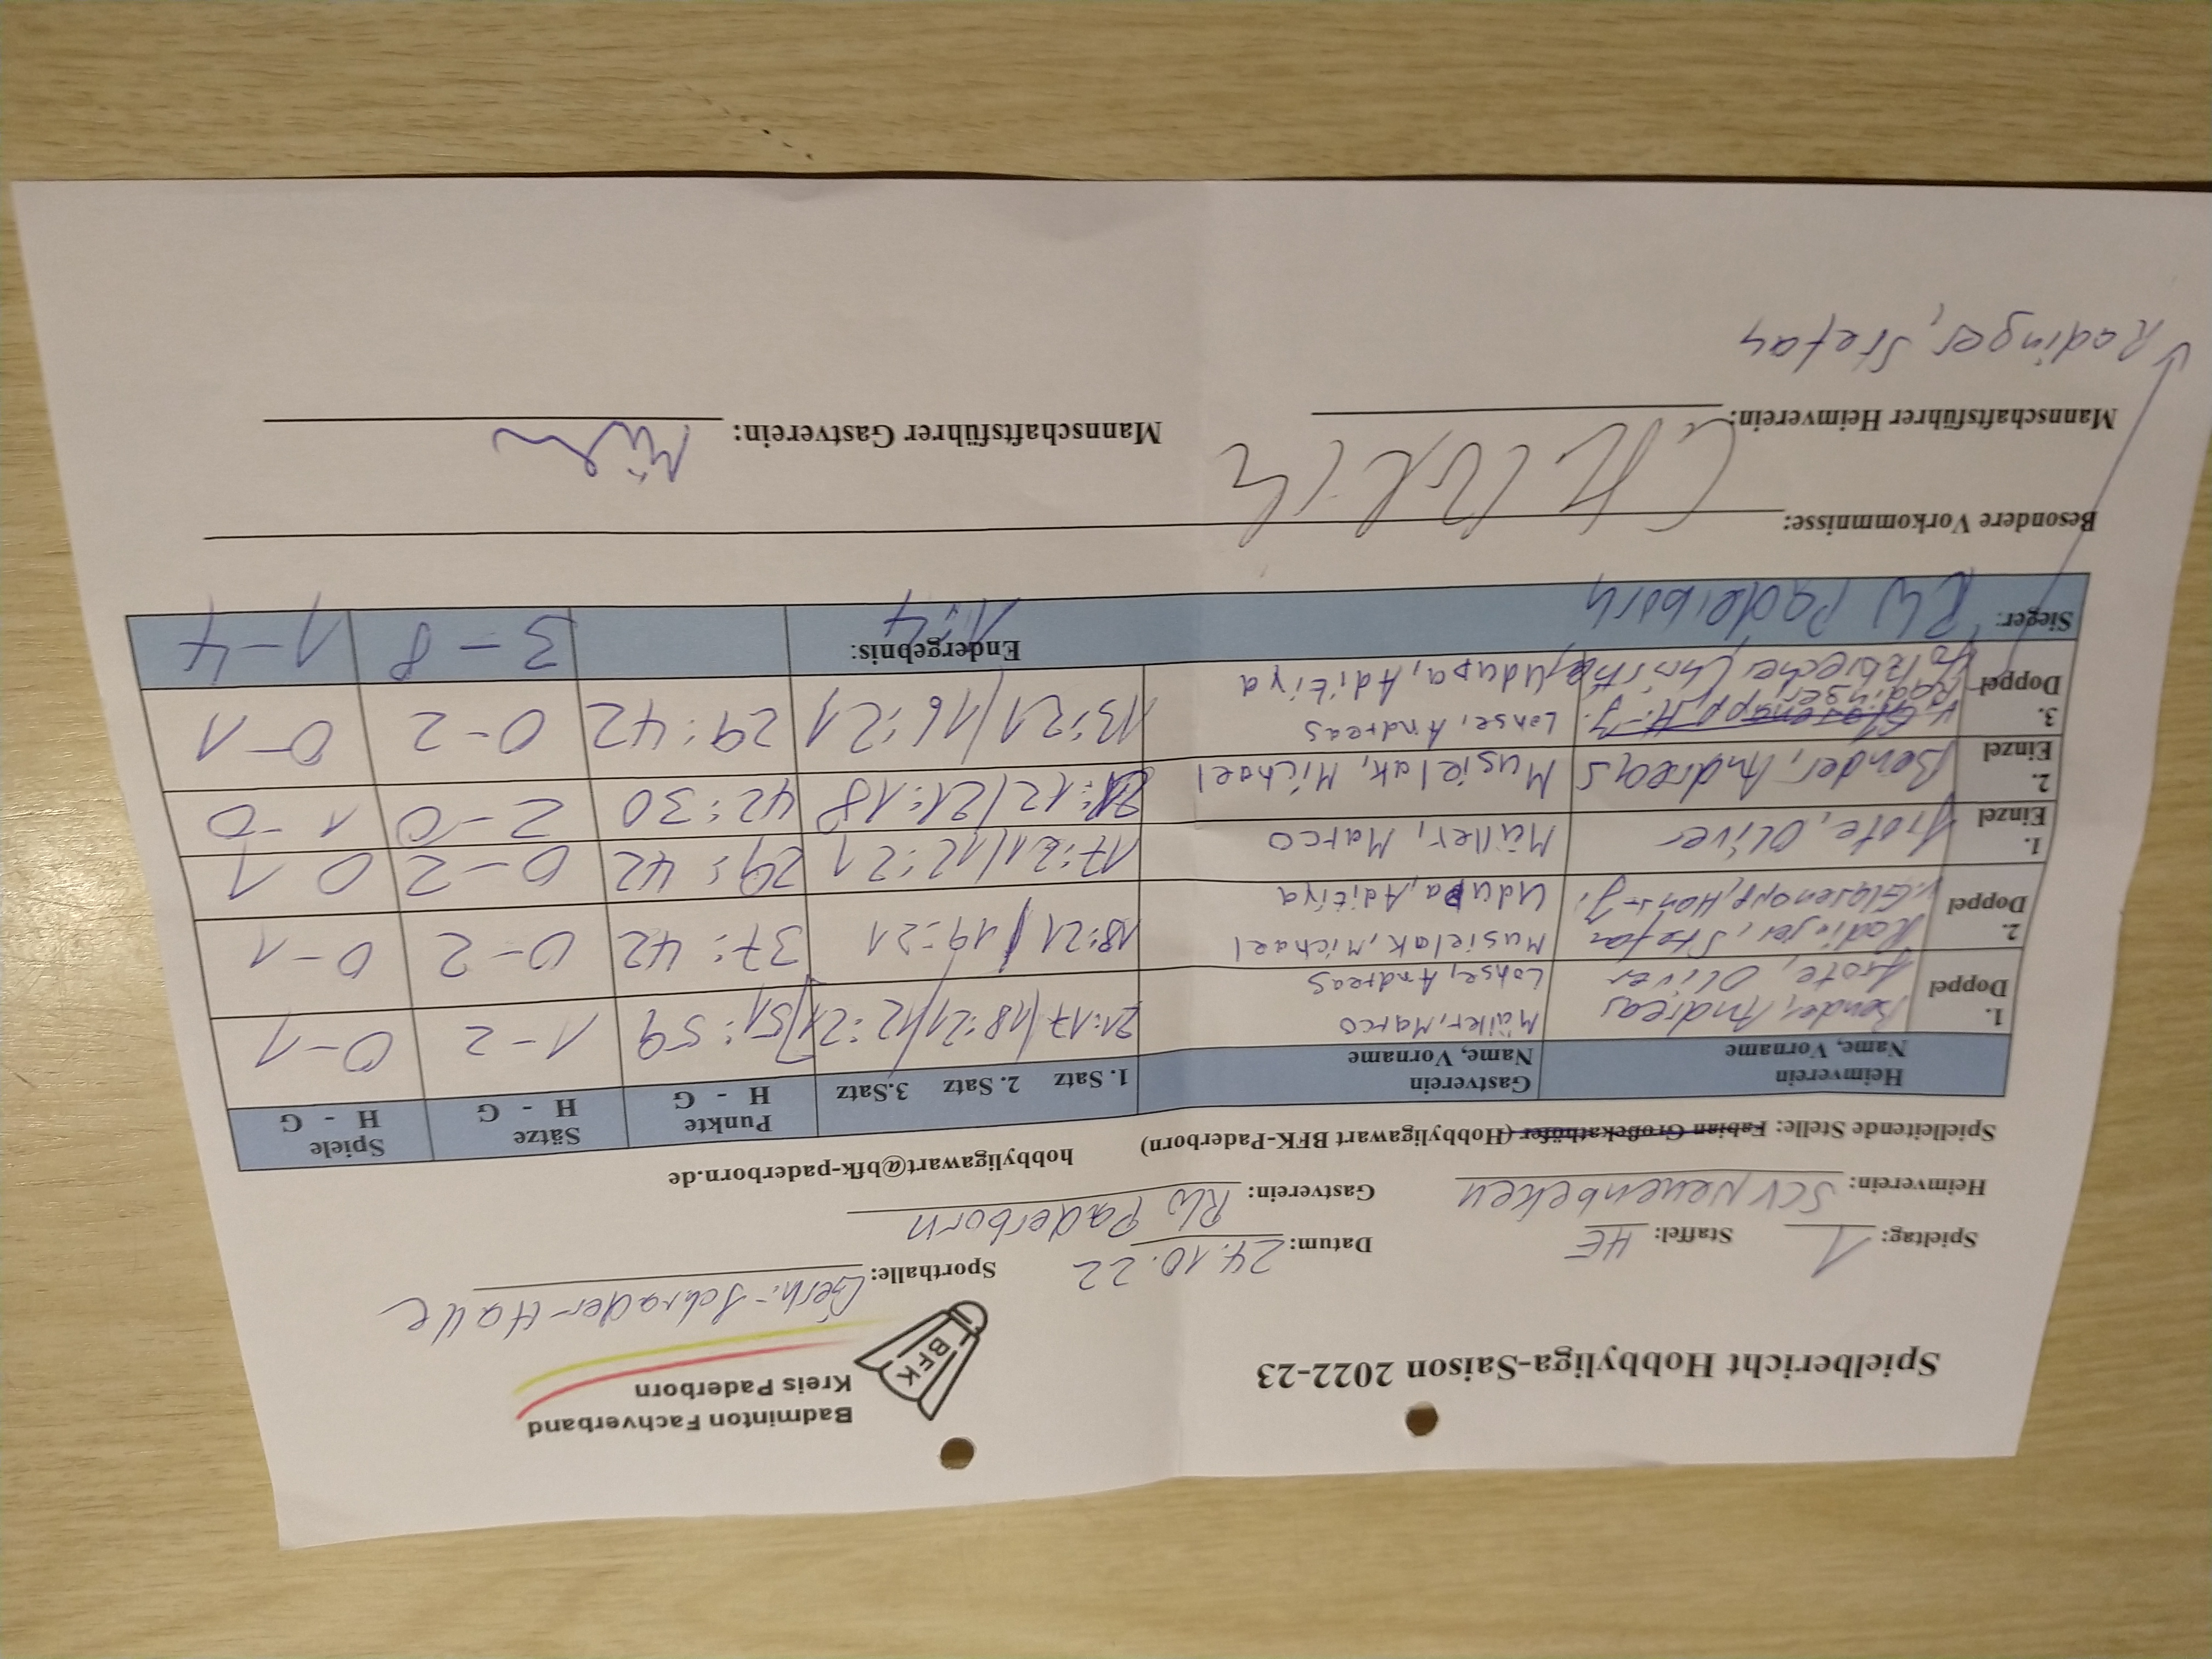 Badminton Fachverband
Kreis Paderborn
BFK
Spielbericht Hobbyliga-Saison 2022-23
Spieltag: 1 Staffel: HE Datum: 24.10.22 Sporthalle: Gerh.-Schrader-Halle
Heimverein: SCV Neuenbeken Gastverein: RW Paderborn
Spielleitende Stelle: Fabian Großekathöfer (Hobbyligawart BFK-Paderborn) hobbyligawart@bfk-paderborn.de
Heimverein Gastverein 1. Satz 2. Satz 3.Satz Punkte Sätze Spiele
Name, Vorname Name, Vorname H - G H - G H - G
1. Doppel Bender, Andreas Müller, Marco 21:17/18:21/12:21 51:59 1-2 0-1
Arote, Oliver Lohse, Andreas
2. Doppel Radinger, Stefan Musielak, Michael 18:21/19:21 37:42 0-2 0-1
v. Glasenapp, Hans-J. Udupa, Aditiya
1. Einzel Arote, Oliver Müller, Marco 17:21/12:21 29:42 0-2 0 1
2. Einzel Bender, Andreas Musielak, Michael 21:12/21:18 42:30 2-0 1-0
3. Doppel v. Glasenapp, H.-J. Lohse, Andreas 13:21/16:21 29:42 0-2 0-1
Radinger
Udupa, Aditiya
Sieger: RW Paderborn Endergebnis: 1:4 3-8 1-4
Besondere Vorkommnisse:
Mannschaftsführer Heimverein: Mannschaftsführer Gastverein:
Radinger, Stefan